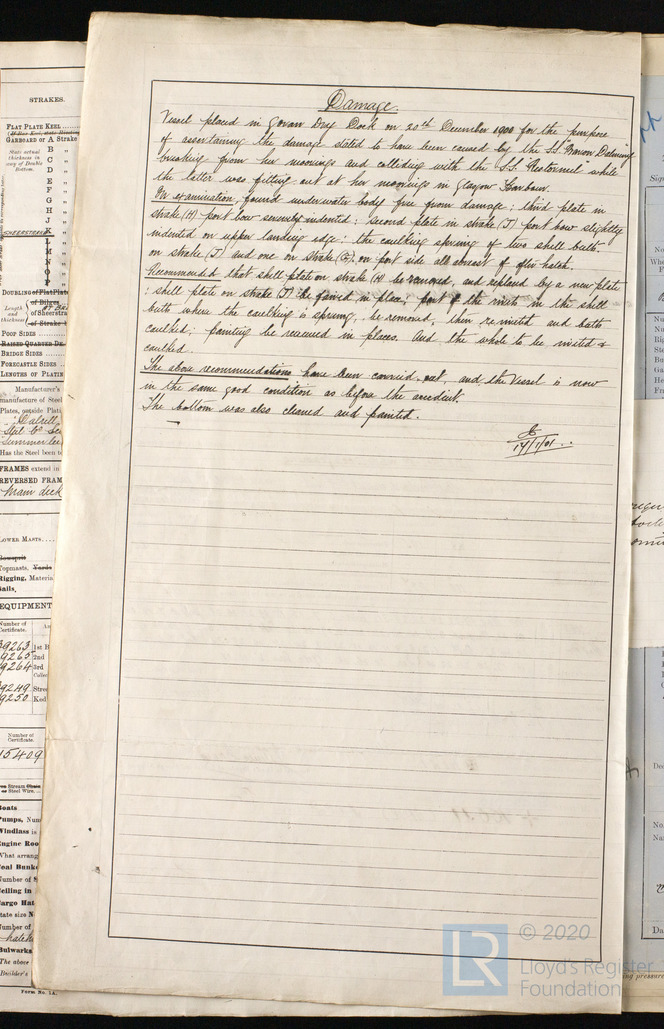 Damage.
Vessel placed in Govan Dry Dock on 20th December 1900 for the purpose
of ascertaining the damage stated to have been caused by the S.S. Baron Dalmeny
breaking from her moorings and colliding with the S.S. Restormel while
the latter was fitting out at her moorings in Glasgow Harbour.
On examination, found underwater body free from damage; third plate in
strake (H) port bow severely indented; second plate in strake (J) port bow slightly
indented on upper landing edge; the caulking sprung of two shell butts
on strake (J) and one on strake (G), on port side all abreast of after hatch.
Recommended that shell plate on strake (H) be removed, and replaced by a new plate
; shell plate on strake (J) be faired in place; part of the rivets in the shell
butts where the caulking is sprung, be removed, then rerivetted and butts
caulked; painting be renewed in places. And the whole to be riveted &
caulked.
The above recommendations have been carried out, and the Vessel is now
in the same good condition as before the accident.
The bottom was also cleaned and painted.
17/1/01
STRAKES.
FLAT PLATE KEEL
GARBOARD OR A Strake
State actual
thickness in
way of Double
Bottom.
B "
C "
D "
E "
F "
G "
H "
J "
K
L
M
N
O
P
DOUBLING of Flat Plate
of Bilges
Length
and
thickness
of Sheerstrake
of Strake
POOP SIDES
RAISED QUARTER DE
BRIDGE SIDES
FORECASTLE SIDES
LENGTHS OF PLATIN
Manufacturer's
manufacture of Steel
Plates, outside Plati
Dalzell
Summerlee
Has the Steel been te
FRAMES extend in
REVERSED FRAM
Main deck
LOWER MASTS
Bowsprit
Topmasts, Yards
Rigging, Materia
Sails,
EQUIPMENT
Number of
Certificate.
9263 1st B
9265 2nd
9264 3rd
9249 Stre
9250 Ked
Number of
Certificate.
15409
or Steel Wire
Boats
Pumps, Num
Windlass is
Engine Roo
What arrang
Coal Bunk
Number of
Ceiling in
Cargo Hat
State size
Number of
hatch
Bulwarks
The above
Builder's
Form No. 1A.
LR
© 2020
Lloyd's Register
Foundation